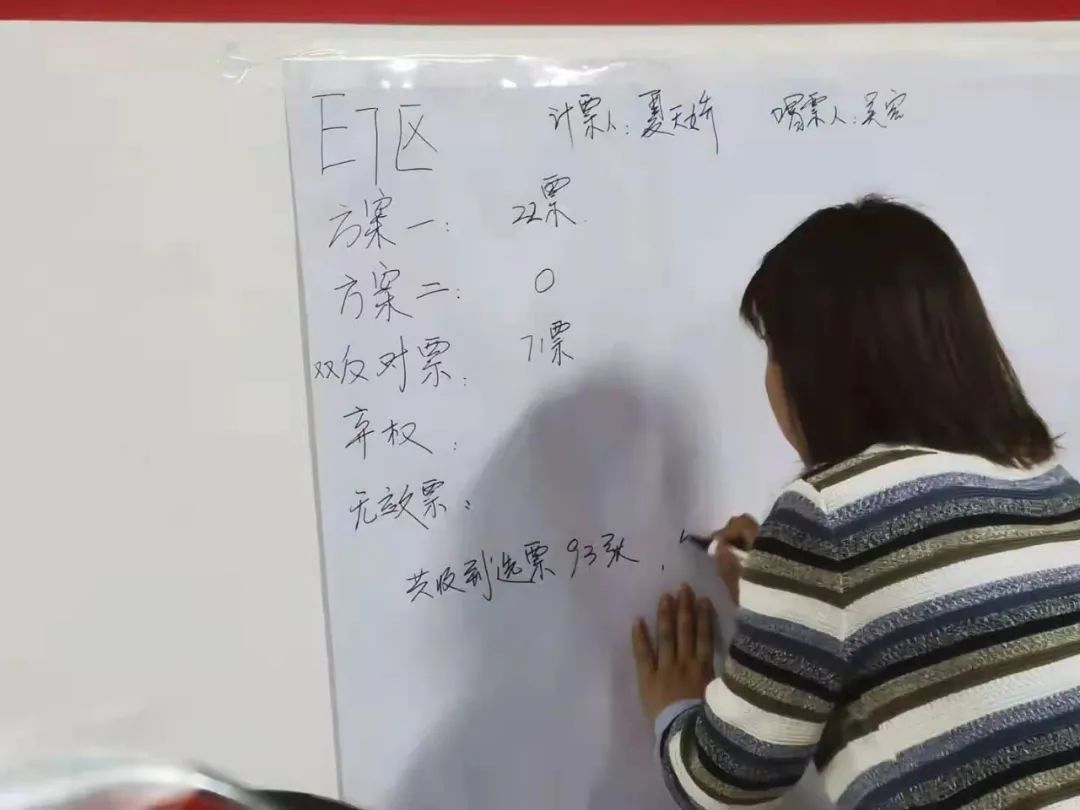 E7区 计票人:夏天娇 唱票人:吴宏
方案一: 22票
方案二: 0
双反对票: 71票
弃权:
无效票:
共收到选票93张,